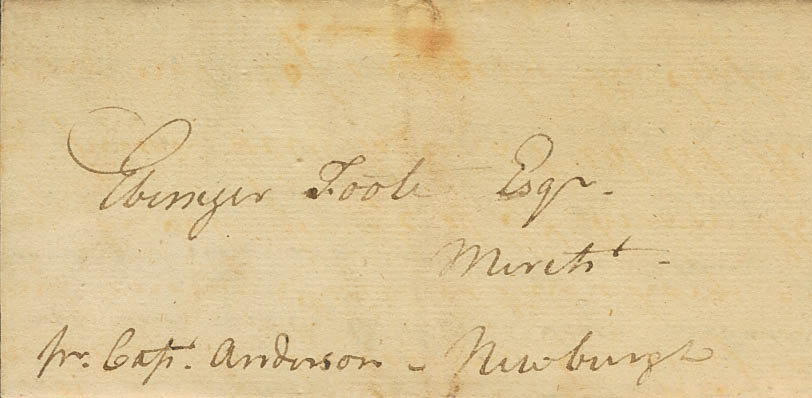 Ebenezer Foote Esqr.
Mercht -
pr. Capt. Anderson - Newburgh